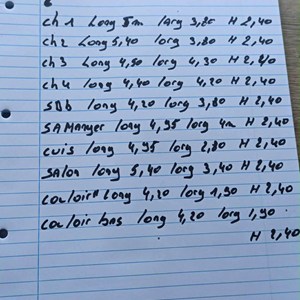 ch 1 long 5m larg 3,80 H 2,40
ch2 Long 5,40 lorg 3,80 H 2,40
ch 3 Long 4,50 lorg 4,30 H 2,40
ch 4 long 4,40 lorg 4,20 H 2,40
SDb long 4,20 lorg 3,80 H 2,40
SAManger long 4,95 lorg 4m H 2,40
cuis long 4,95 lorg 2,80 H 2,40
salon long 5,40 lorg 3,40 H 2,40
couloir long 4,20 lorg 1,90 H 2,40
couloir bas long 4,20 lorg 1,90
H 2,40